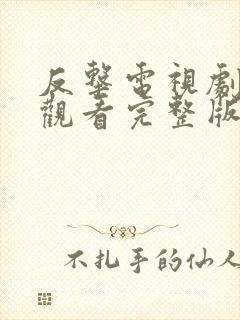 反擊電視劇
觀看完整版
不扎手的仙人